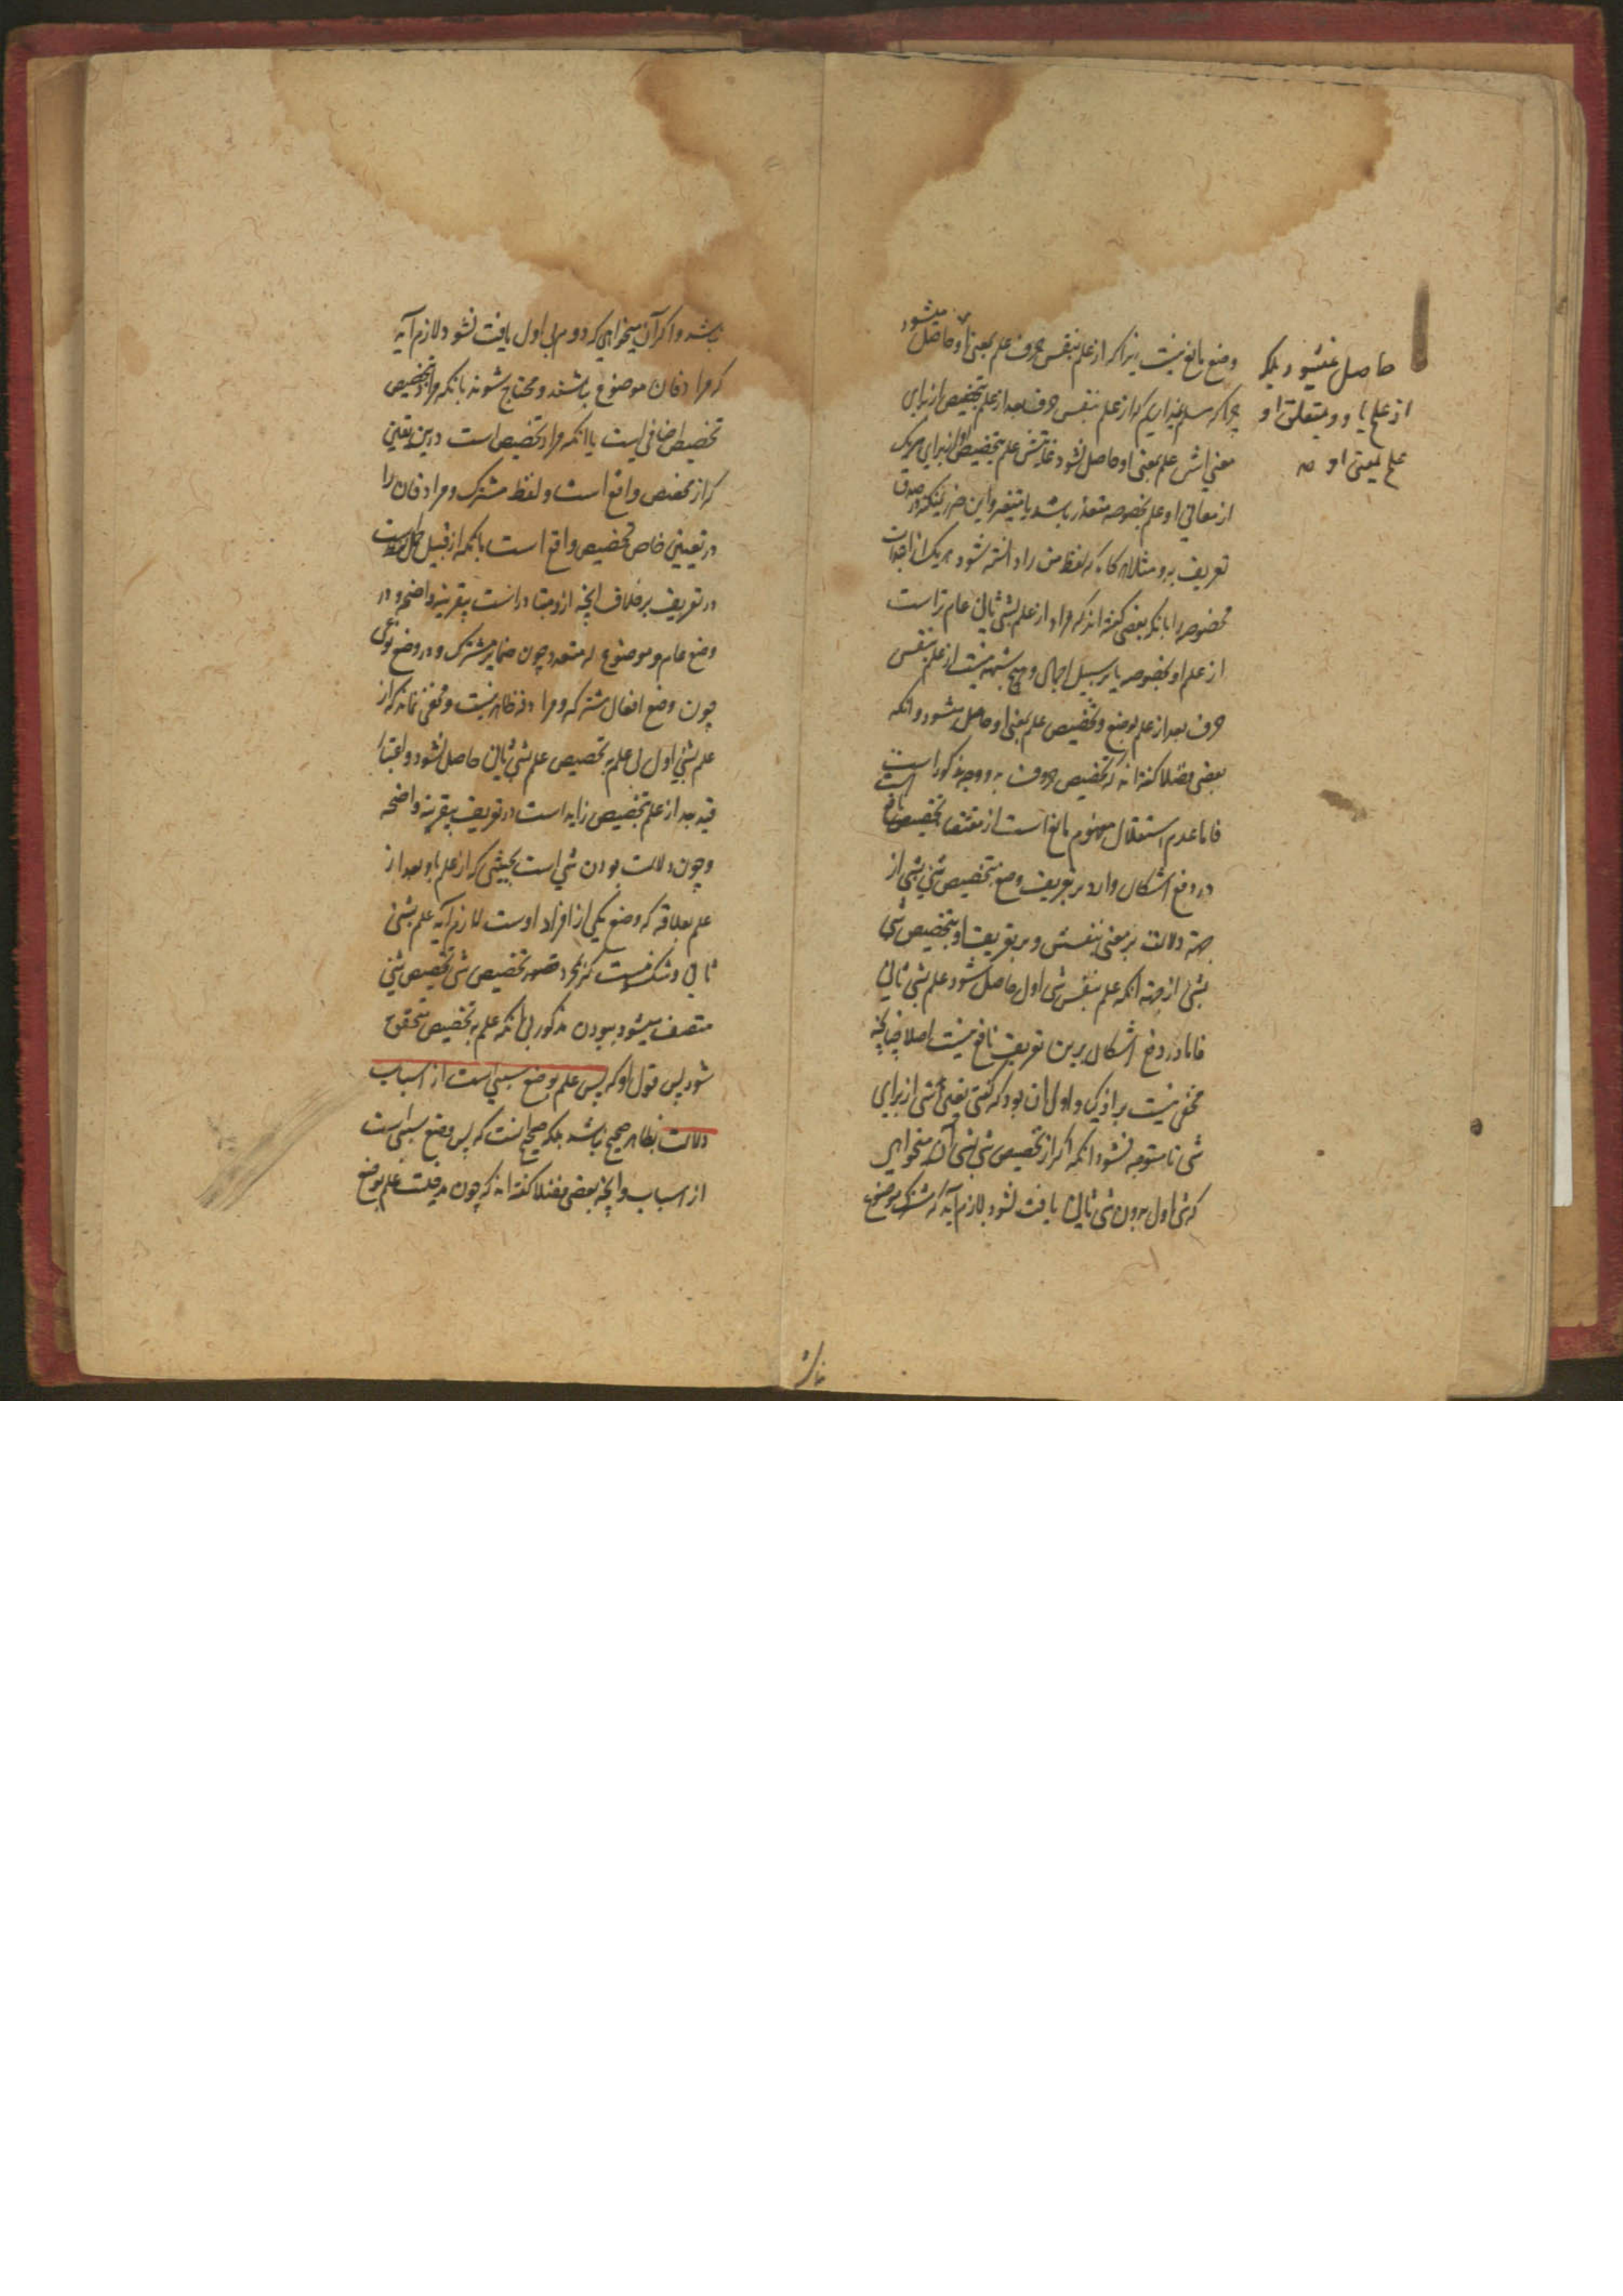 وضع مانع نیست زیرا که از علم بنفس حرف علم بمعنی او حاصل میشود
چرا که مسلم نداریم که از علم بنفس حرف بعد از علم بتخصیص از برای
معنی اش علم بمعنی او حاصل نشود غایتش علم بتخصیص او از برای هر یک
از معانی او علم بخصوصه متعذر باشد یا متعسر و این ضرر نمیکند در صدق
تعریف برو مثلا هر گاه که لفظ من را دانسته شود هر یک از ابتدات
مخصوصه را بانکه بعضی گفته اند که مراد از علم بشی ثانی عام تر است
از علم او بخصوصه یا بر سبیل اجمال و هیچ شبهه نیست از علم بنفس
حرف بعد از علم بوضع و تخصیص علم بمعنی او حاصل میشود و انکه
بعضی فضلا گفته اند که تخصیص حروف به دو وجه مذکور است
فاما عدم استقلال مفهوم مانع است از مقتضا تخصیص نافع است
در دفع اشکال وارد بر تعریف وضع بتخصیص شی بشی از
جهة دلالت بر معنی بنفسش و بر تعریف او بتخصیص شی
بشی از جهة انکه علم بنفس شی اول حاصل شود علم بشی ثانی
فاما در دفع اشکال برین تعریف نافع نیست اصلا چنانچه
مخفی نیست بر اذکیا و اولی ان بود که گفتی تعیین شی از برای
شی تا متوجه نشود انکه اگر از تخصیص شی بشی آن میخواهی
که شی اول بدون شی ثانی یافت نشود لازم آید که مشترک موضوع
حاصل نمیشود بلکه
از علم باو و بمتعلق او
علم بمعنی او صه
نباشد و اگر آن میخواهی که دوم بی اول یافت نشود لازم آید
که مرادفان موضوع نباشند و محتاج شوند بانکه مراد بتخصیص
تخصیص اضافی است یا انکه مراد تخصیص است درین تعیین
که از مخصص واقع است و لفظ مشترک و مرادفان را
در تعیین خاص تخصیص واقع است بانکه از قبیل حمل لفظ است
در تعریف بر خلاف انچه ازو متبادر است بیقرینه واضحه و در
وضع عام و موضوع له متعدد چون ضمایر مشترک و در وضع نوعی
چون وضع افعال مشترکه و مرادفه ظاهر نیست و مخفی نماند که از
علم بشی اول بی علم به تخصیص علم بشی ثانی حاصل نشود و اعتبار
قید بعد از علم بتخصیص زاید است در تعریف بیقرینه واضحه
و چون دلالت بودن شی است بحیثی که از علم باو بعد از
علم بعلاقه که وضع یکی از افراد اوست لازم آید علم بشی
ثانی و شک نیست که بمجرد تصور تخصیص شی تخصیص شی
متصف میشود ببودن مذکور بی انکه علم به تخصیص متحقق
شود پس قول او که پس علم بوضع سببی است از اسباب
دلالت بظاهر صحیح نباشد بلکه صحیح انست که پس وضع سببی است
از اسباب و انچه بعضی فضلا گفته اند که چون مدخلیت علم بوضع